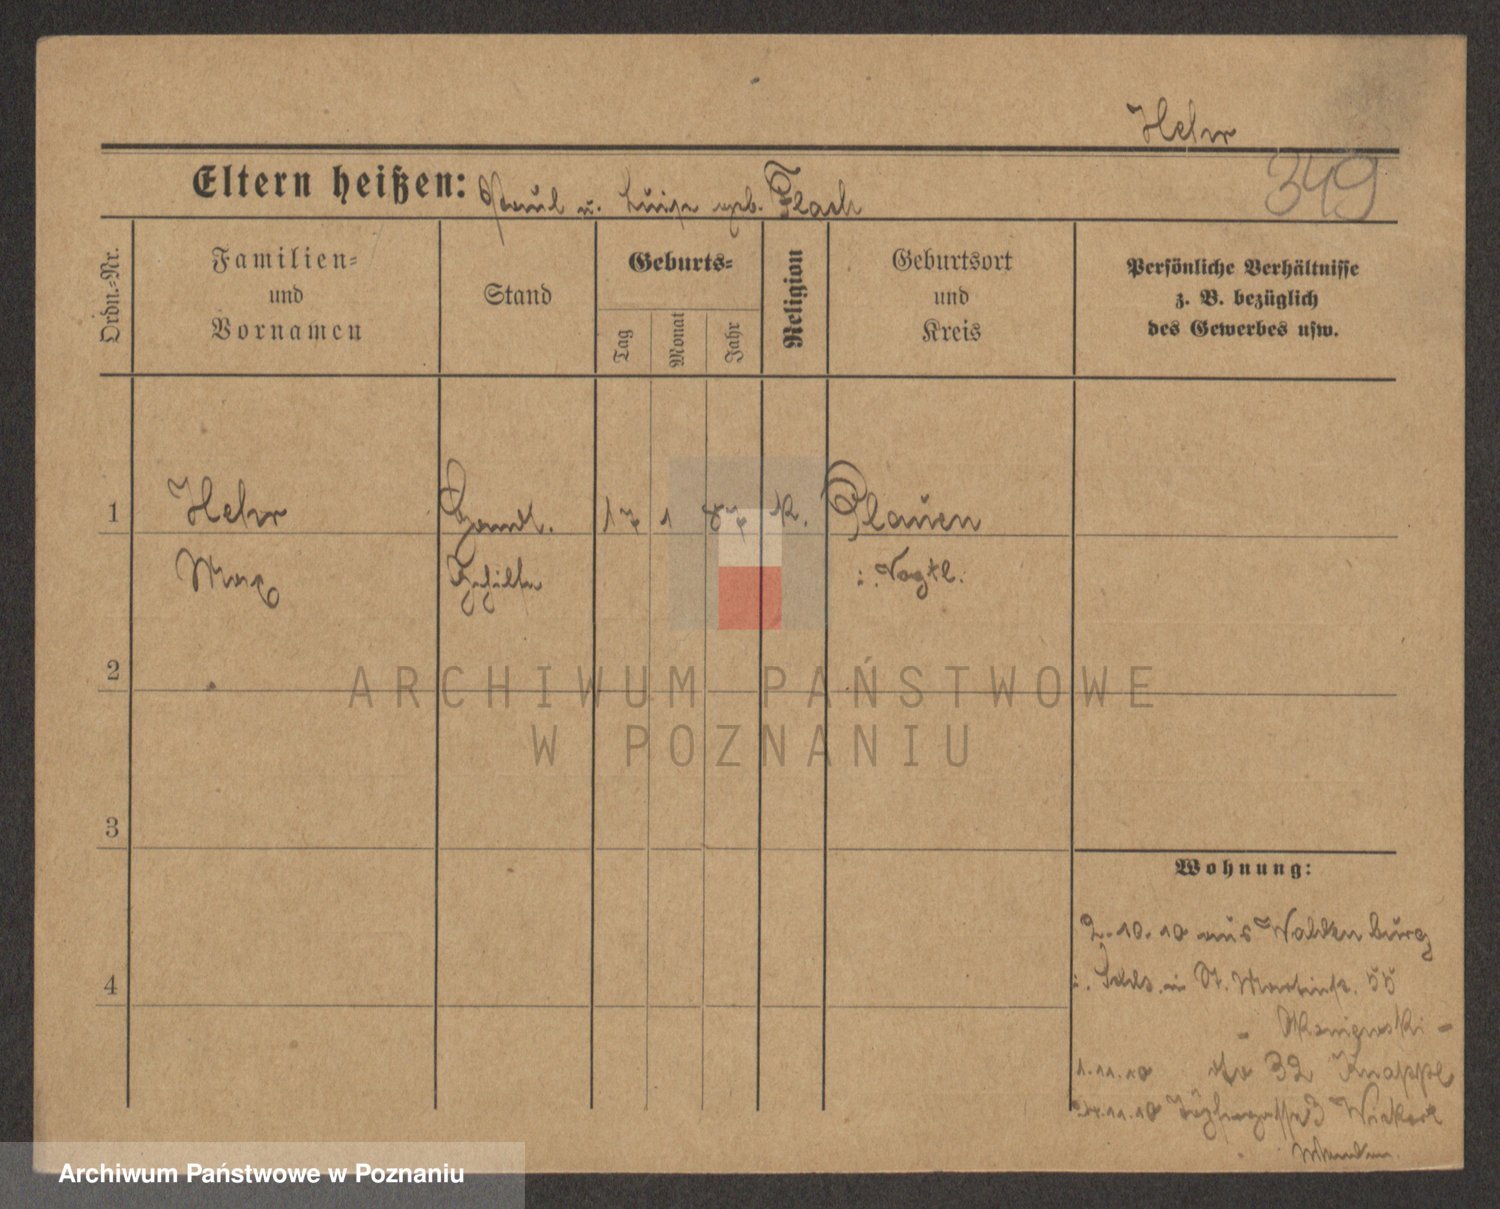 Hehr
349
Eltern heißen: Paul u. Luise geb. Flach
Ordn.-Nr.
Familien-
und
Vornamen
Stand
Geburts-
Tag
Monat
Jahr
Religion
Geburtsort
und
Kreis
Persönliche Verhältnisse
z. B. bezüglich
des Gewerbes usw.
1 Hehr Handl. 17 1 87 k. Plauen
Max Gehilfe i. Vogtl.
2
3
4
Wohnung:
2.10.10 aus Waldenburg
i. Schls. in St. Martinstr. 55
1.11.10 32
24.11.10 3
ARCHIWUM PAŃSTWOWE
W POZNANIU
Archiwum Państwowe w Poznaniu